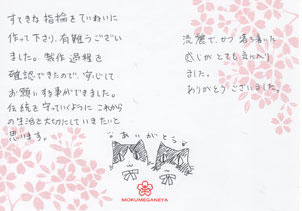 すてきな指輪をていねいに
作って下さり、有難うござい
ました。製作過程を
確認できたので、安心して
お願いする事ができました。
伝統を守っていくように これから
の生活を大切にしていきたいと
思います。
流麗で、かつ 落ち着いた
感じが とても 気に入り
ました。
ありがとうございました。
ありがとう
MOKUMEGANEYA